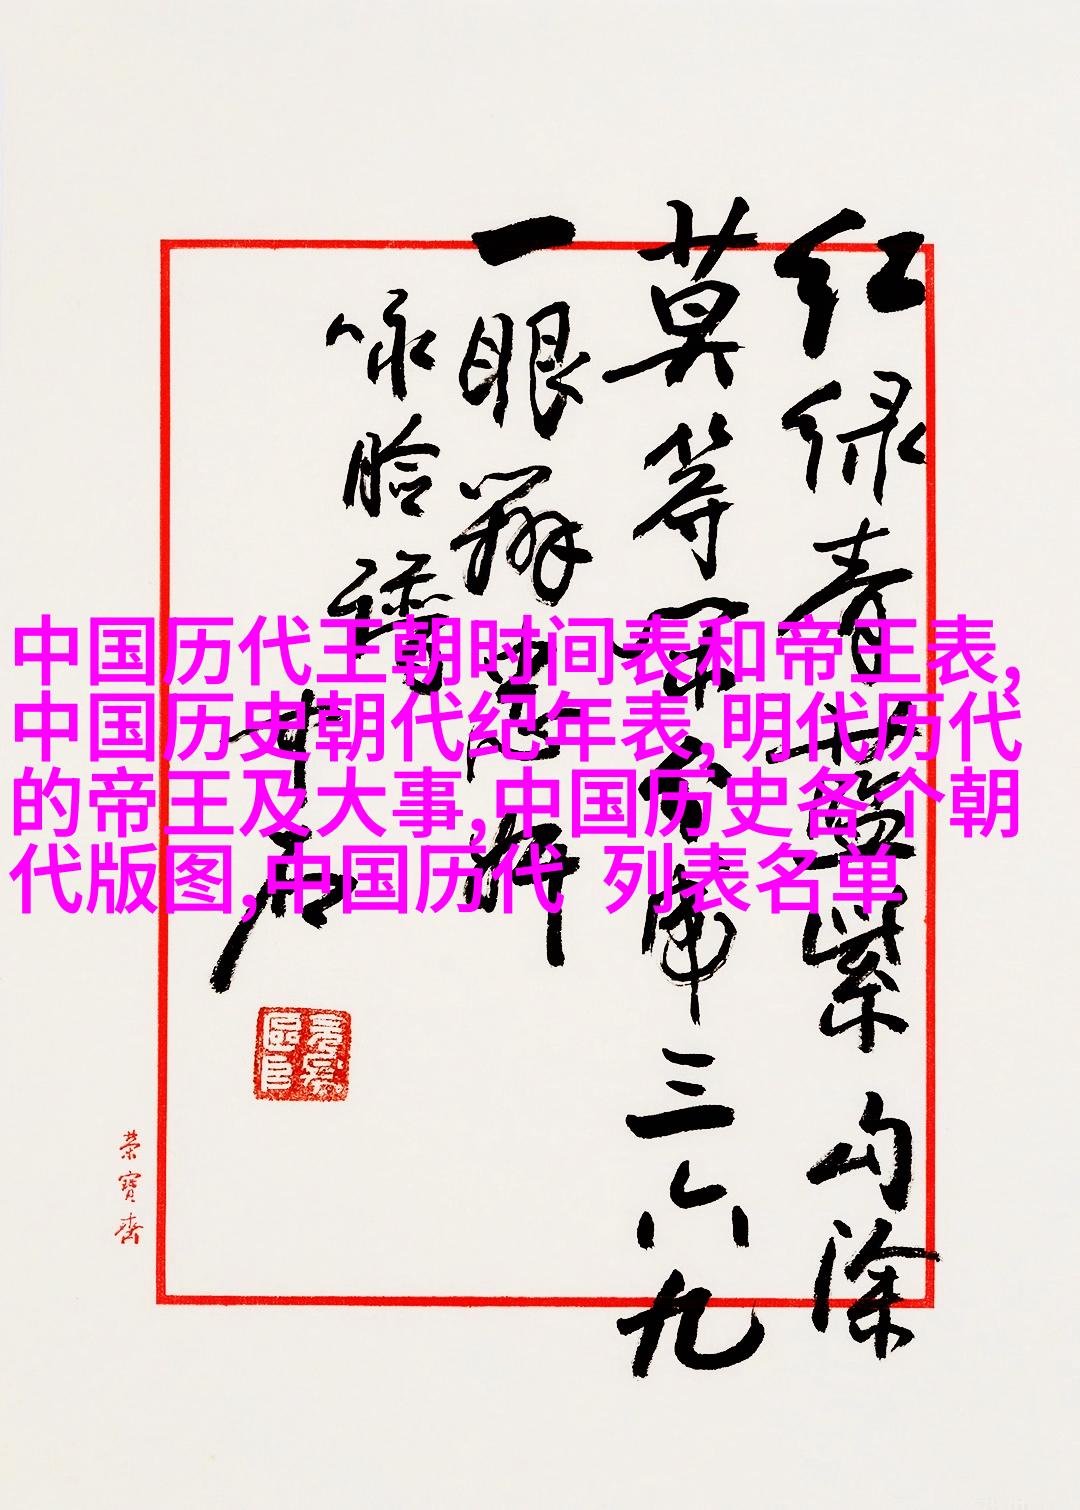 中国历代王朝时间表和帝王表,
中国历史朝代纪年表,明代历代
的帝王及大事,中国历史各个朝
代版图,中国历代 列表名单
红绿青蓝紫勾涂
莫等闲分席三六九
一眼辨忠奸
咏脸谱
荣寶齋